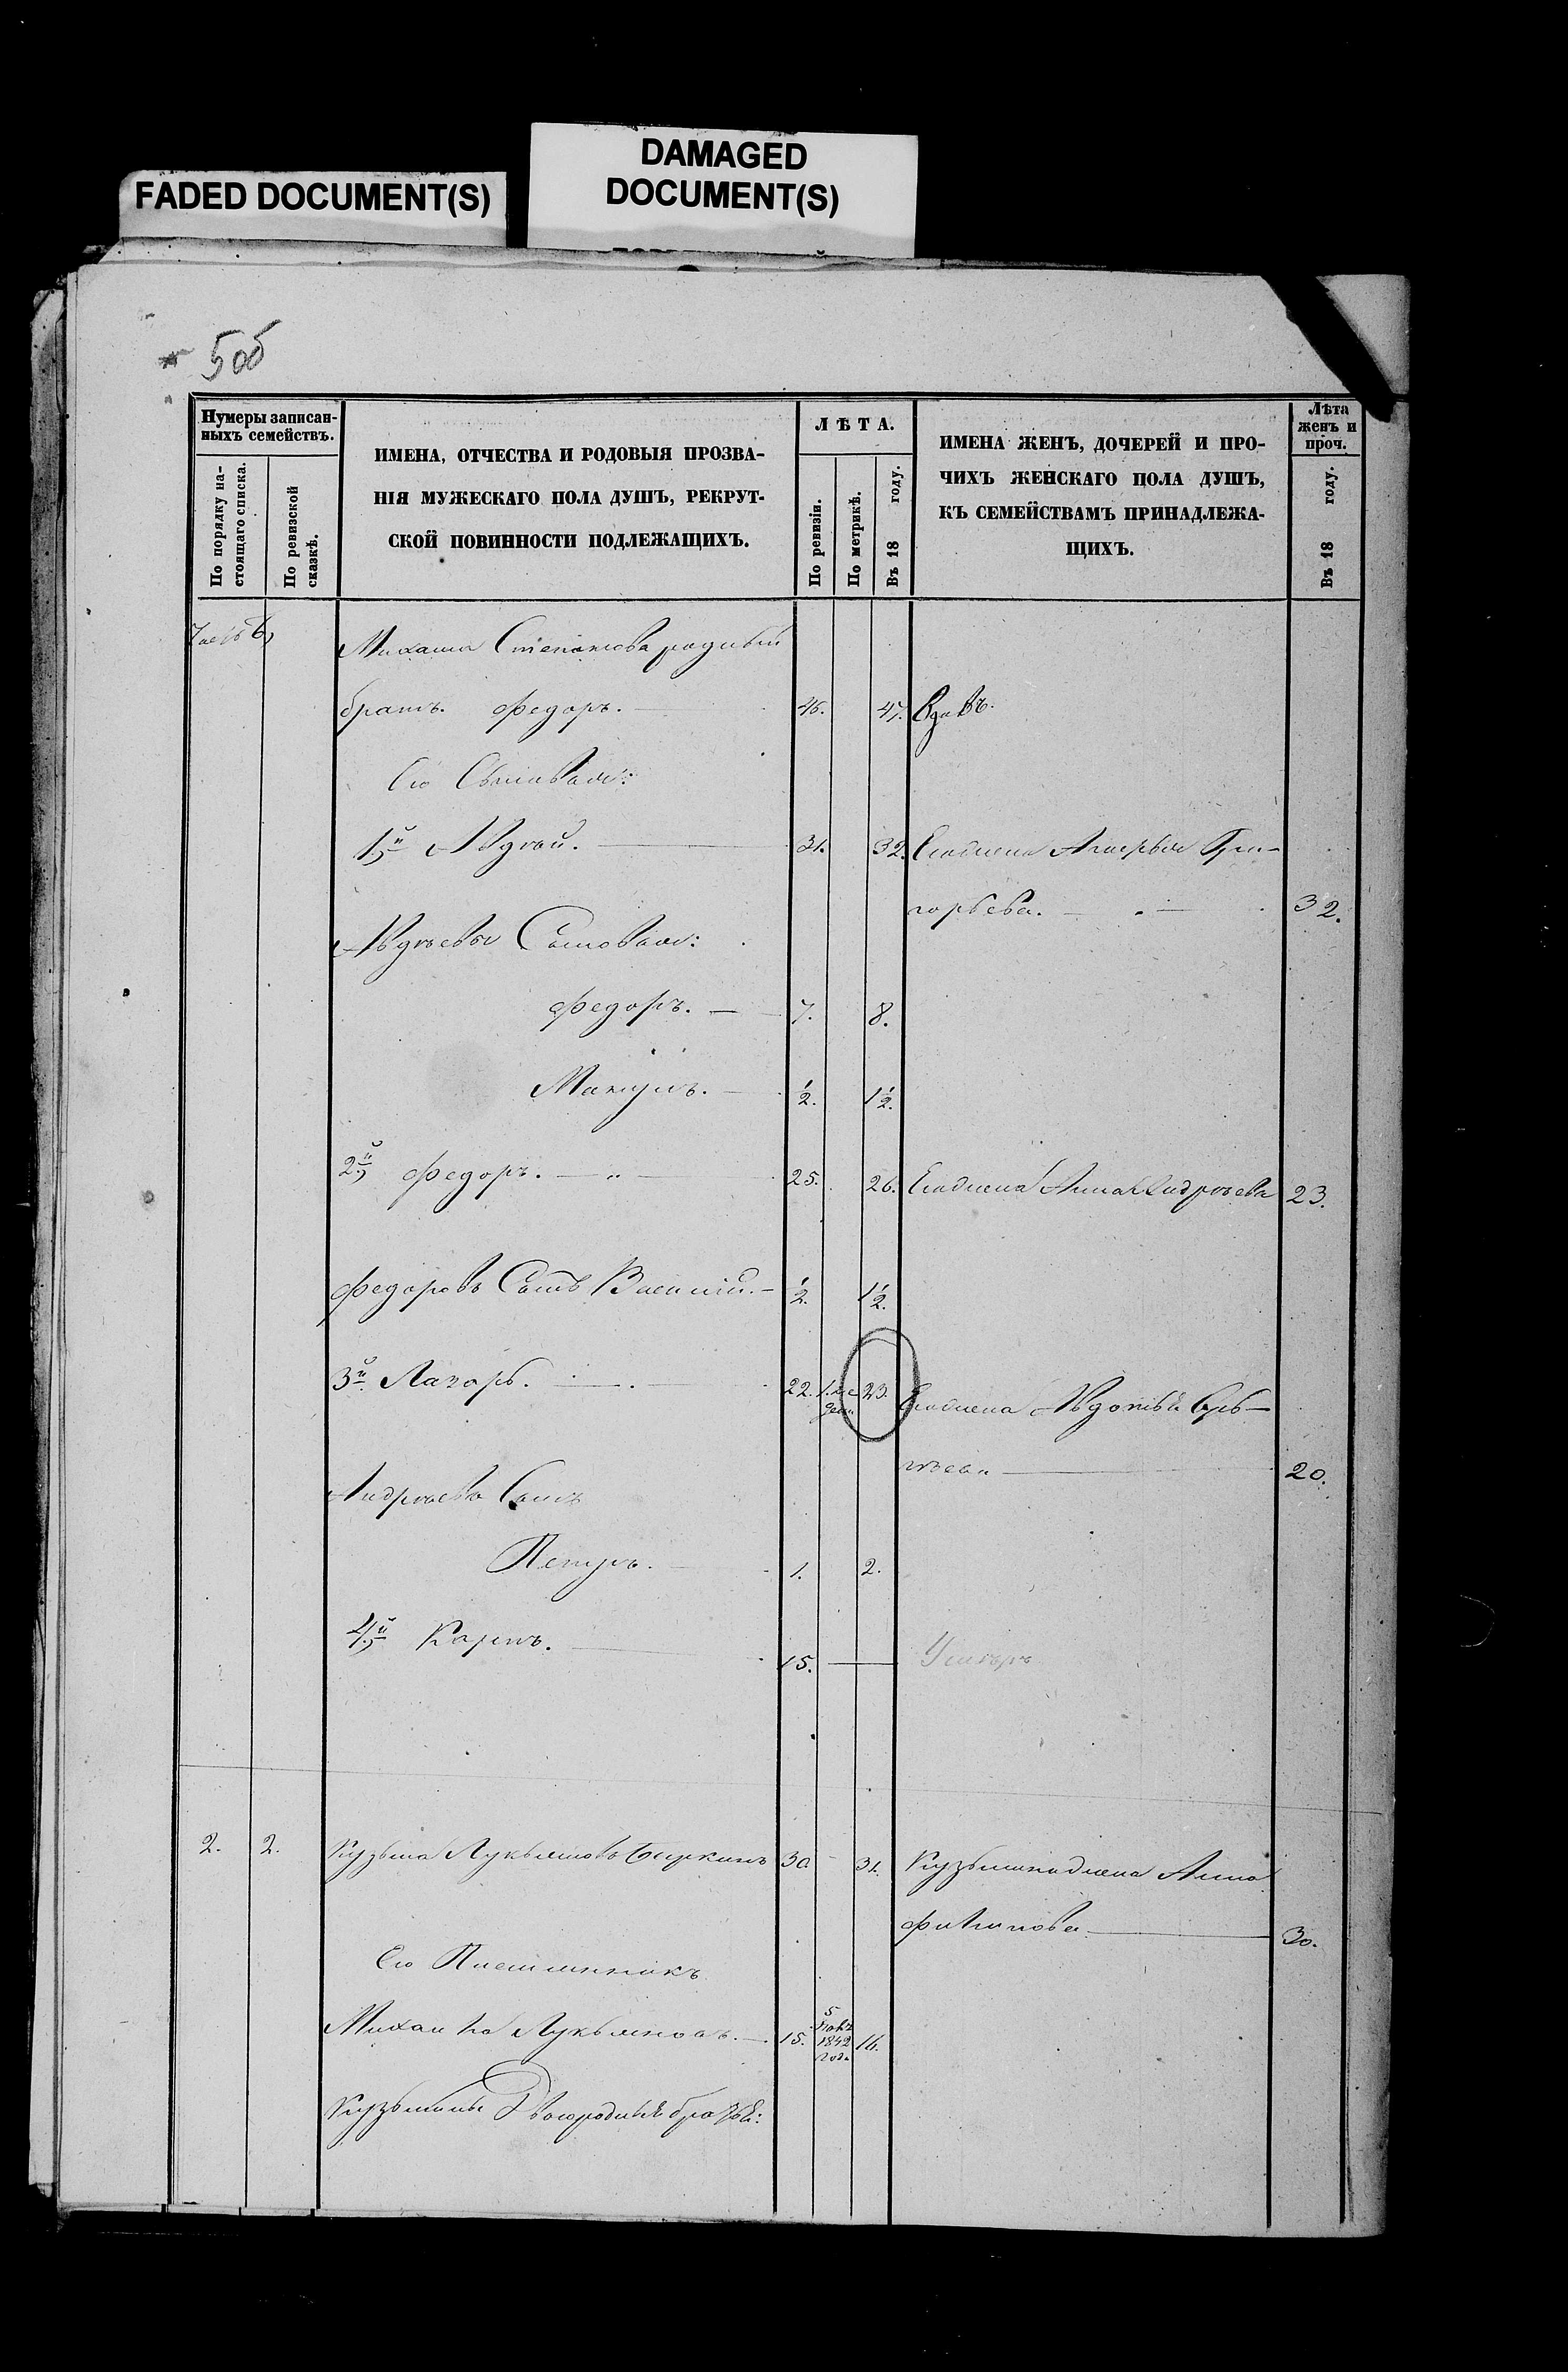 DAMAGED
DOCUMENT(S)
FADED DOCUMENT(S)
506
Нумеры записан-
ныхъ семействъ.
По порядку на-
стоящаго списка.
По ревизской
сказкѣ.
ИМЕНА, ОТЧЕСТВА И РОДОВЫЯ ПРОЗВА-
НІЯ МУЖЕСКАГО ПОЛА ДУШЪ, РЕКРУТ-
СКОЙ ПОВИННОСТИ ПОДЛЕЖАЩИХЪ.
ЛѢТА.
По ревизіи.
По метрикѣ.
Въ 18 году.
ИМЕНА ЖЕНЪ, ДОЧЕРЕЙ И ПРО-
ЧИХЪ ЖЕНСКАГО ПОЛА ДУШЪ,
КЪ СЕМЕЙСТВАМЪ ПРИНАДЛЕЖА-
ЩИХЪ.
Лѣта
женъ и
проч.
Въ 18 году.
Михаила Степанова родный
братъ Федоръ. 46. 47. Вдовъ.
Его Сыновья:
1й Авдѣй. 31. 32. Его жена Гри-
горьева. 32.
Авдѣевы Сыновья:
Федоръ. 7. 8.
½. 1½.
2й Федоръ. 25. 26. Его жена Анна Андрѣева 23.
Федоровъ Сынъ Василій. ½. 1½.
3й Лазарь. 22. 23. Его жена Авдотья
20.
Сынъ
Петръ. 1. 2.
4й Карпъ. 15. Умеръ
2. 2. Кузьма Лукьяновъ 30 31. Кузьмина жена Анна
Филипова 30.
Его Племянникъ
Михаила Лукьяновъ. 15. 5 1842 года 16.
Кузьмины Двоюродные братья: